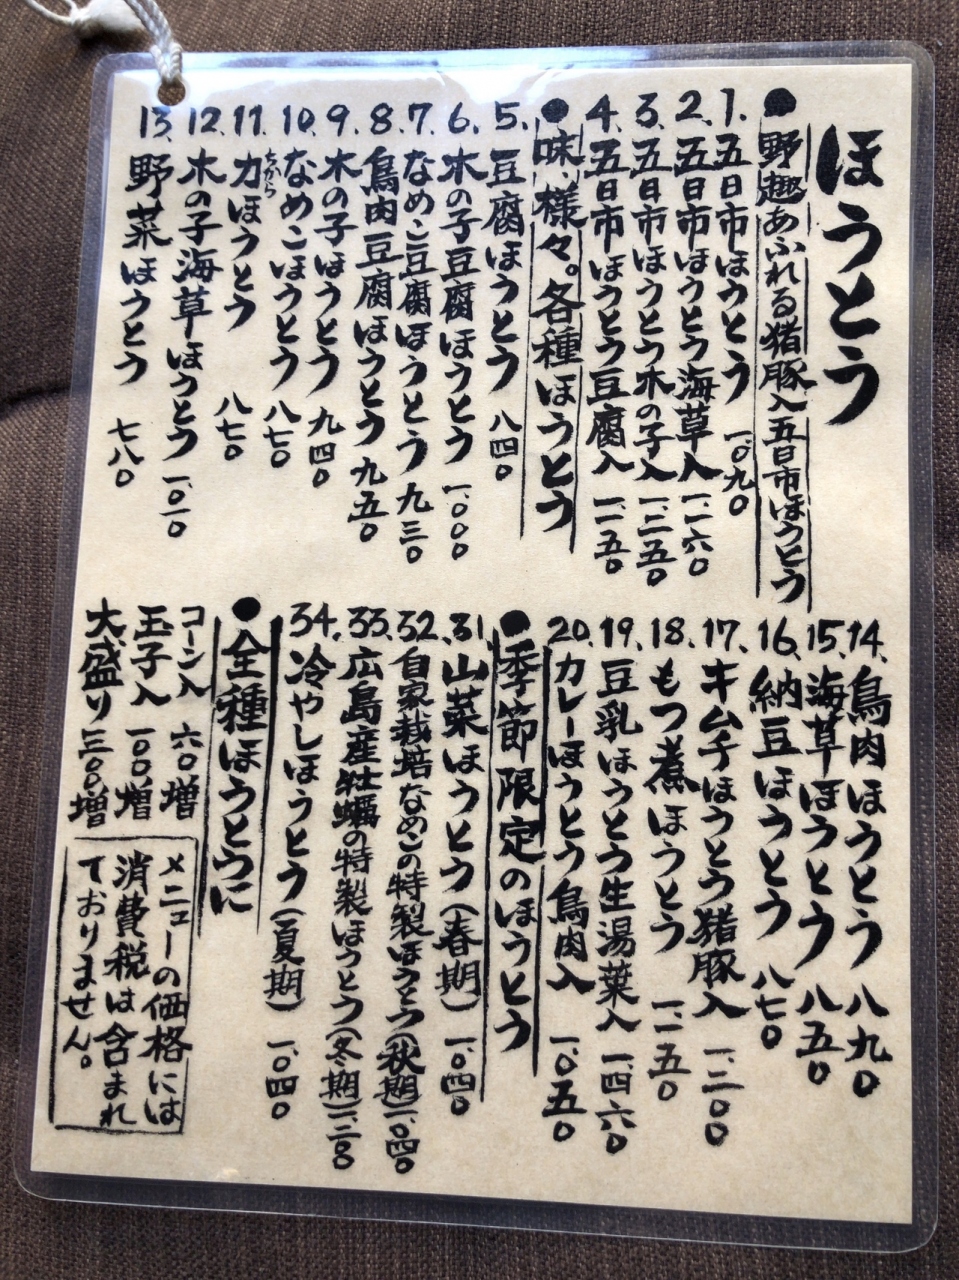 ほうとう
●野趣あふれる猪豚入五日市ほうとう
1. 五日市ほうとう 一、〇九〇
2. 五日市ほうとう海草入 一、一六〇
3. 五日市ほうとう木の子入 一、二五〇
4. 五日市ほうとう豆腐入 一、一五〇
●味、様々。各種ほうとう
5. 豆腐ほうとう 八四〇
6. 木の子豆腐ほうとう 一、〇〇〇
7. なめこ豆腐ほうとう 九三〇
8. 鳥肉豆腐ほうとう 九五〇
9. 木の子ほうとう 九四〇
10. なめこほうとう 八七〇
11. 力ほうとう 八七〇
ちから
12. 木の子海草ほうとう 一、〇一〇
13. 野菜ほうとう 七八〇
14. 鳥肉ほうとう 八九〇
15. 海草ほうとう 八五〇
16. 納豆ほうとう 八七〇
17. キムチほうとう猪豚入 一、二〇〇
18. もつ煮ほうとう 一、一五〇
19. 豆乳ほうとう生湯葉入 一、四六〇
20. カレーほうとう鳥肉入 一、〇五〇
●季節限定のほうとう
31. 山菜ほうとう(春期) 一、〇四〇
32. 自家栽培なめこの特製ほうとう(秋期)一、〇四〇
33. 広島産牡蠣の特製ほうとう(冬期)一、二〇〇
34. 冷やしほうとう(夏期) 一、〇四〇
●全種ほうとうに
コーン入 六〇増
玉子入 一〇〇増
大盛り 三〇〇増
メニューの価格には
消費税は含まれ
ておりません。